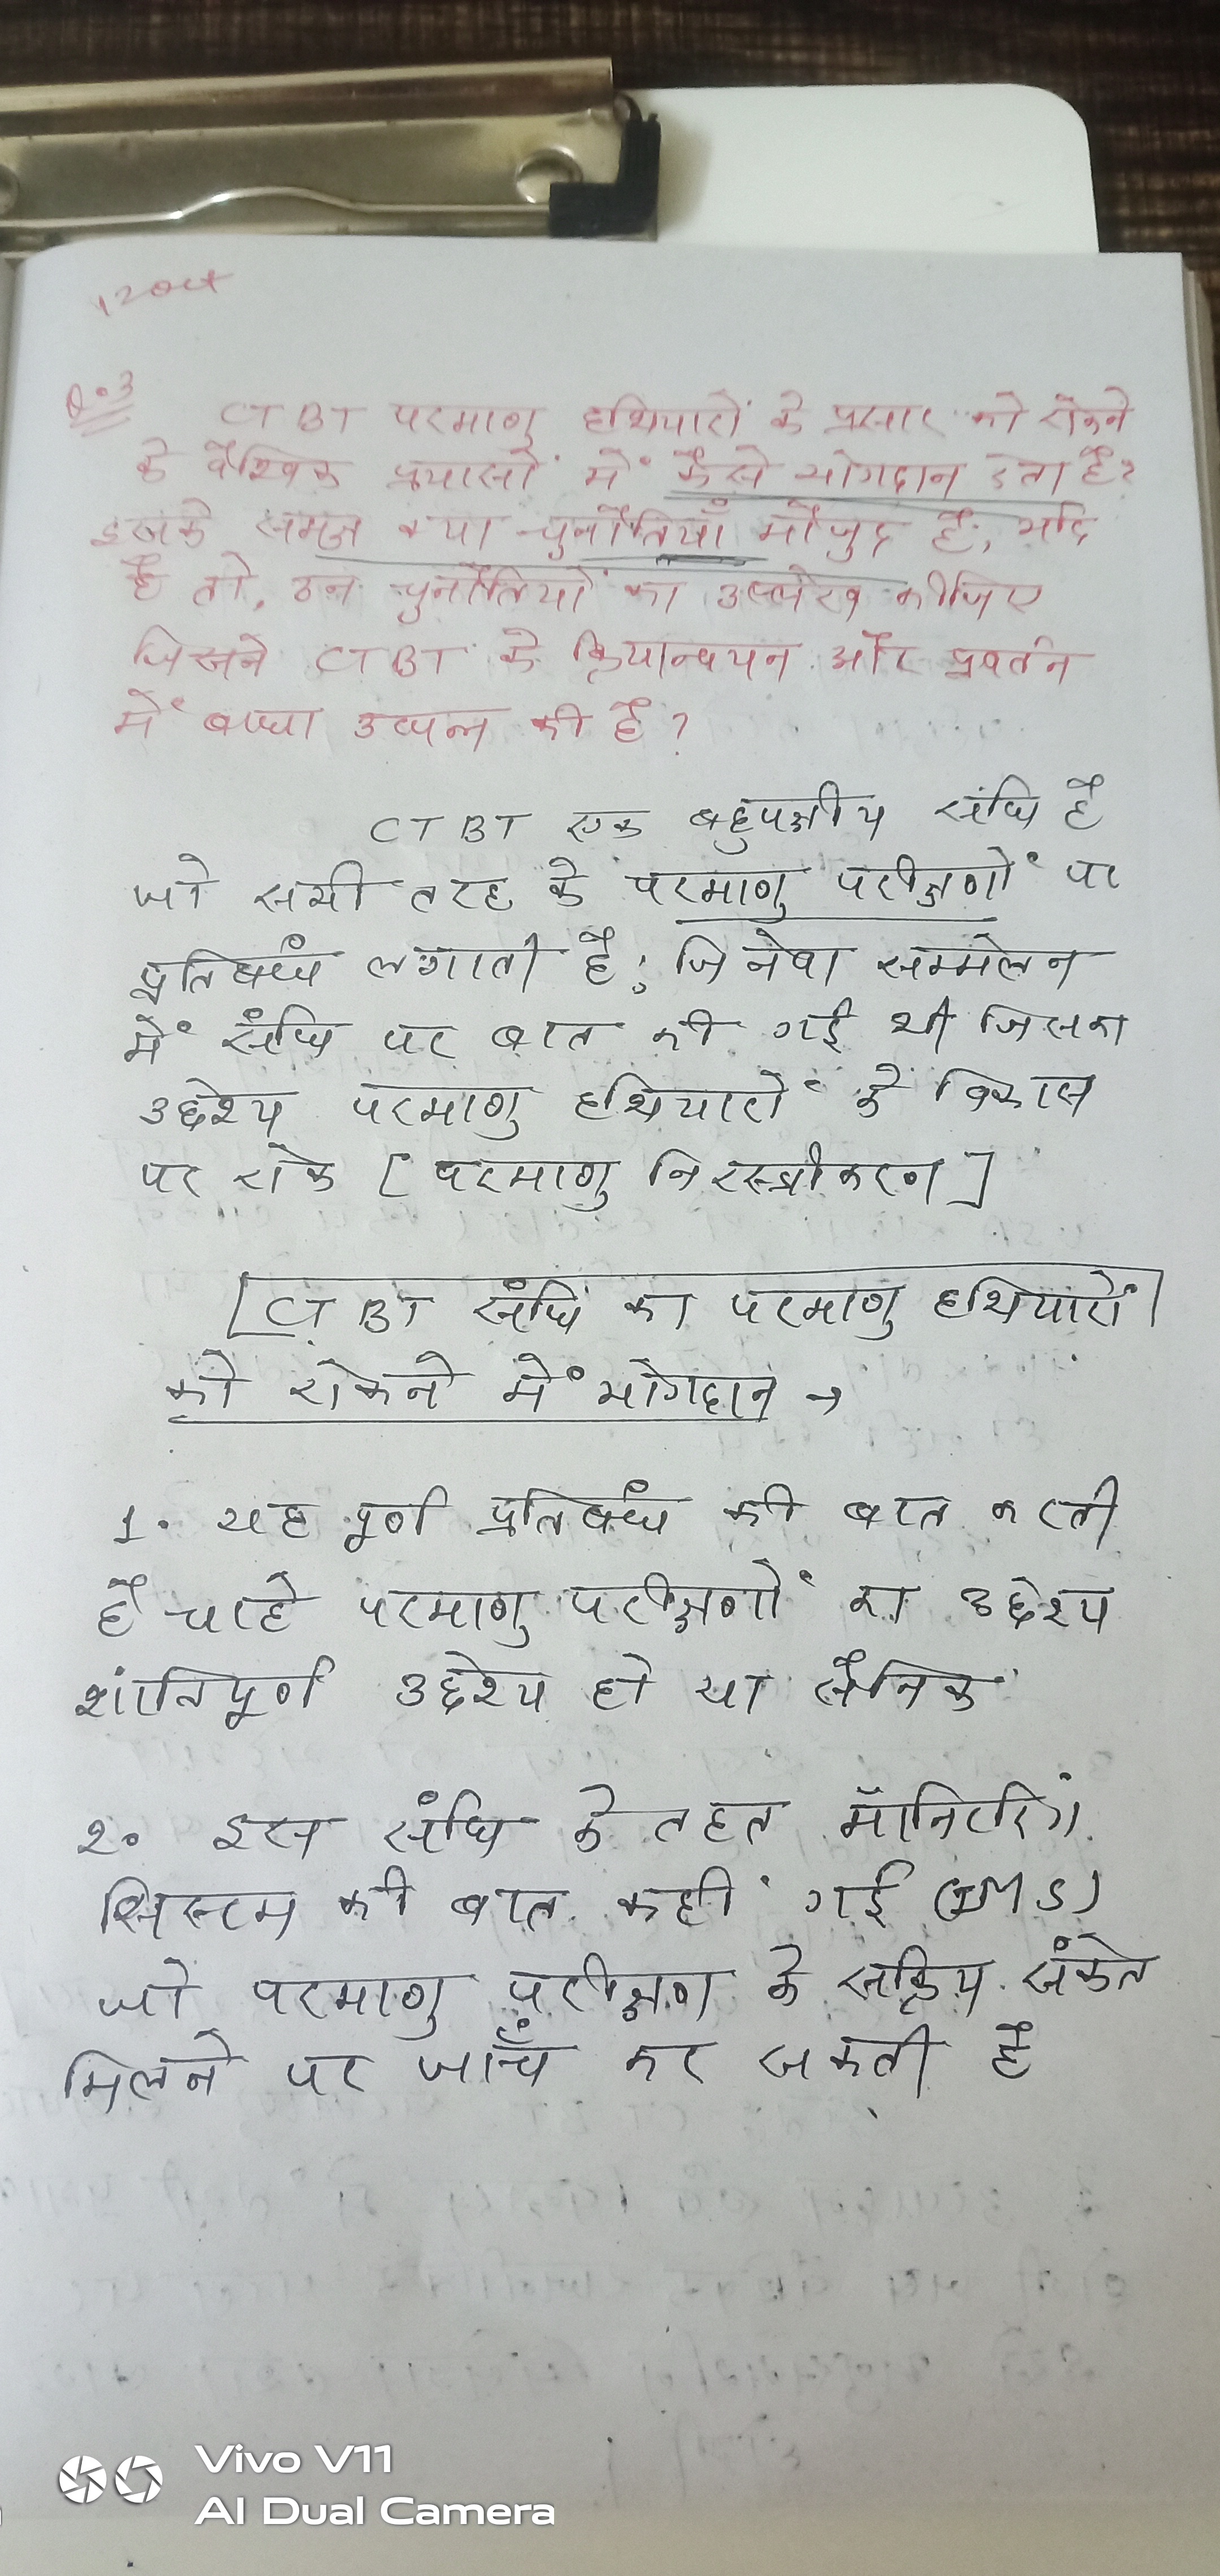 12 Oct
Q.3
CTBT परमाणु हथियारों के प्रसार को रोकने
के वैश्विक प्रयासों में कैसे योगदान देता है?
इसके समक्ष क्या चुनौतियाँ मौजुद है, यदि
है तो, उन चुनौतियों का उल्लेख कीजिए
जिसने CTBT के क्रियान्वयन और प्रवर्तन
में बाधा उत्पन्न की है?
CTBT एक बहुपक्षीय संधि है
जो सभी तरह के परमाणु परीक्षणों पर
प्रतिबंध लगाती है; जिनेवा सम्मेलन
में संधि पर बात की गई थी जिसका
उद्देश्य परमाणु हथियारों के विकास
पर रोक [परमाणु निरस्त्रीकरण]
[CTBT संधि का परमाणु हथियारों
को रोकने में योगदान →
1. यह पूर्ण प्रतिबंध की बात करती
है चाहे परमाणु परीक्षणों का उद्देश्य
शांतिपूर्ण उद्देश्य हो या सैनिक
2. इस संधि के तहत मॉनिटरिंग
सिस्टम की बात कहीं गई (IMS)
जो परमाणु परीक्षण के सक्रिय संकेत
मिलने पर जाँच कर सकती है
Vivo V11
AI Dual Camera